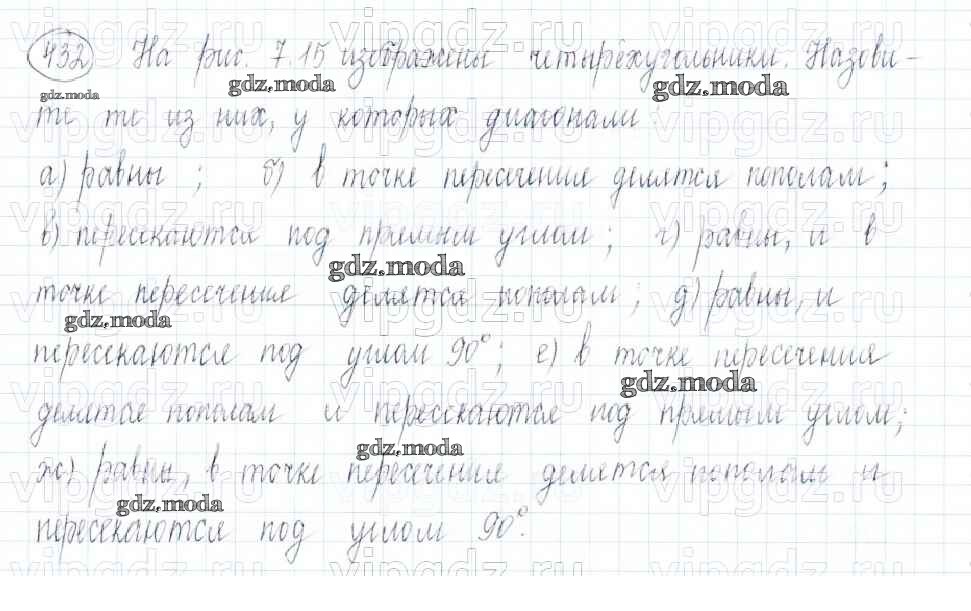 432 На рис. 7.15 изображены четырёхугольники. Назови-
те те из них, у которых диагонали
а) равны ; б) в точке пересечения делятся пополам;
в) пересекаются под прямым углом; г) равны, и в
точке пересечения делятся пополам; д) равны, и
пересекаются под углом 90°; е) в точке пересечения
делятся пополам и пересекаются под прямым углом;
ж) равны, в точке пересечения делятся пополам и
пересекаются под углом 90°.
gdz.moda
vipgdz.ru